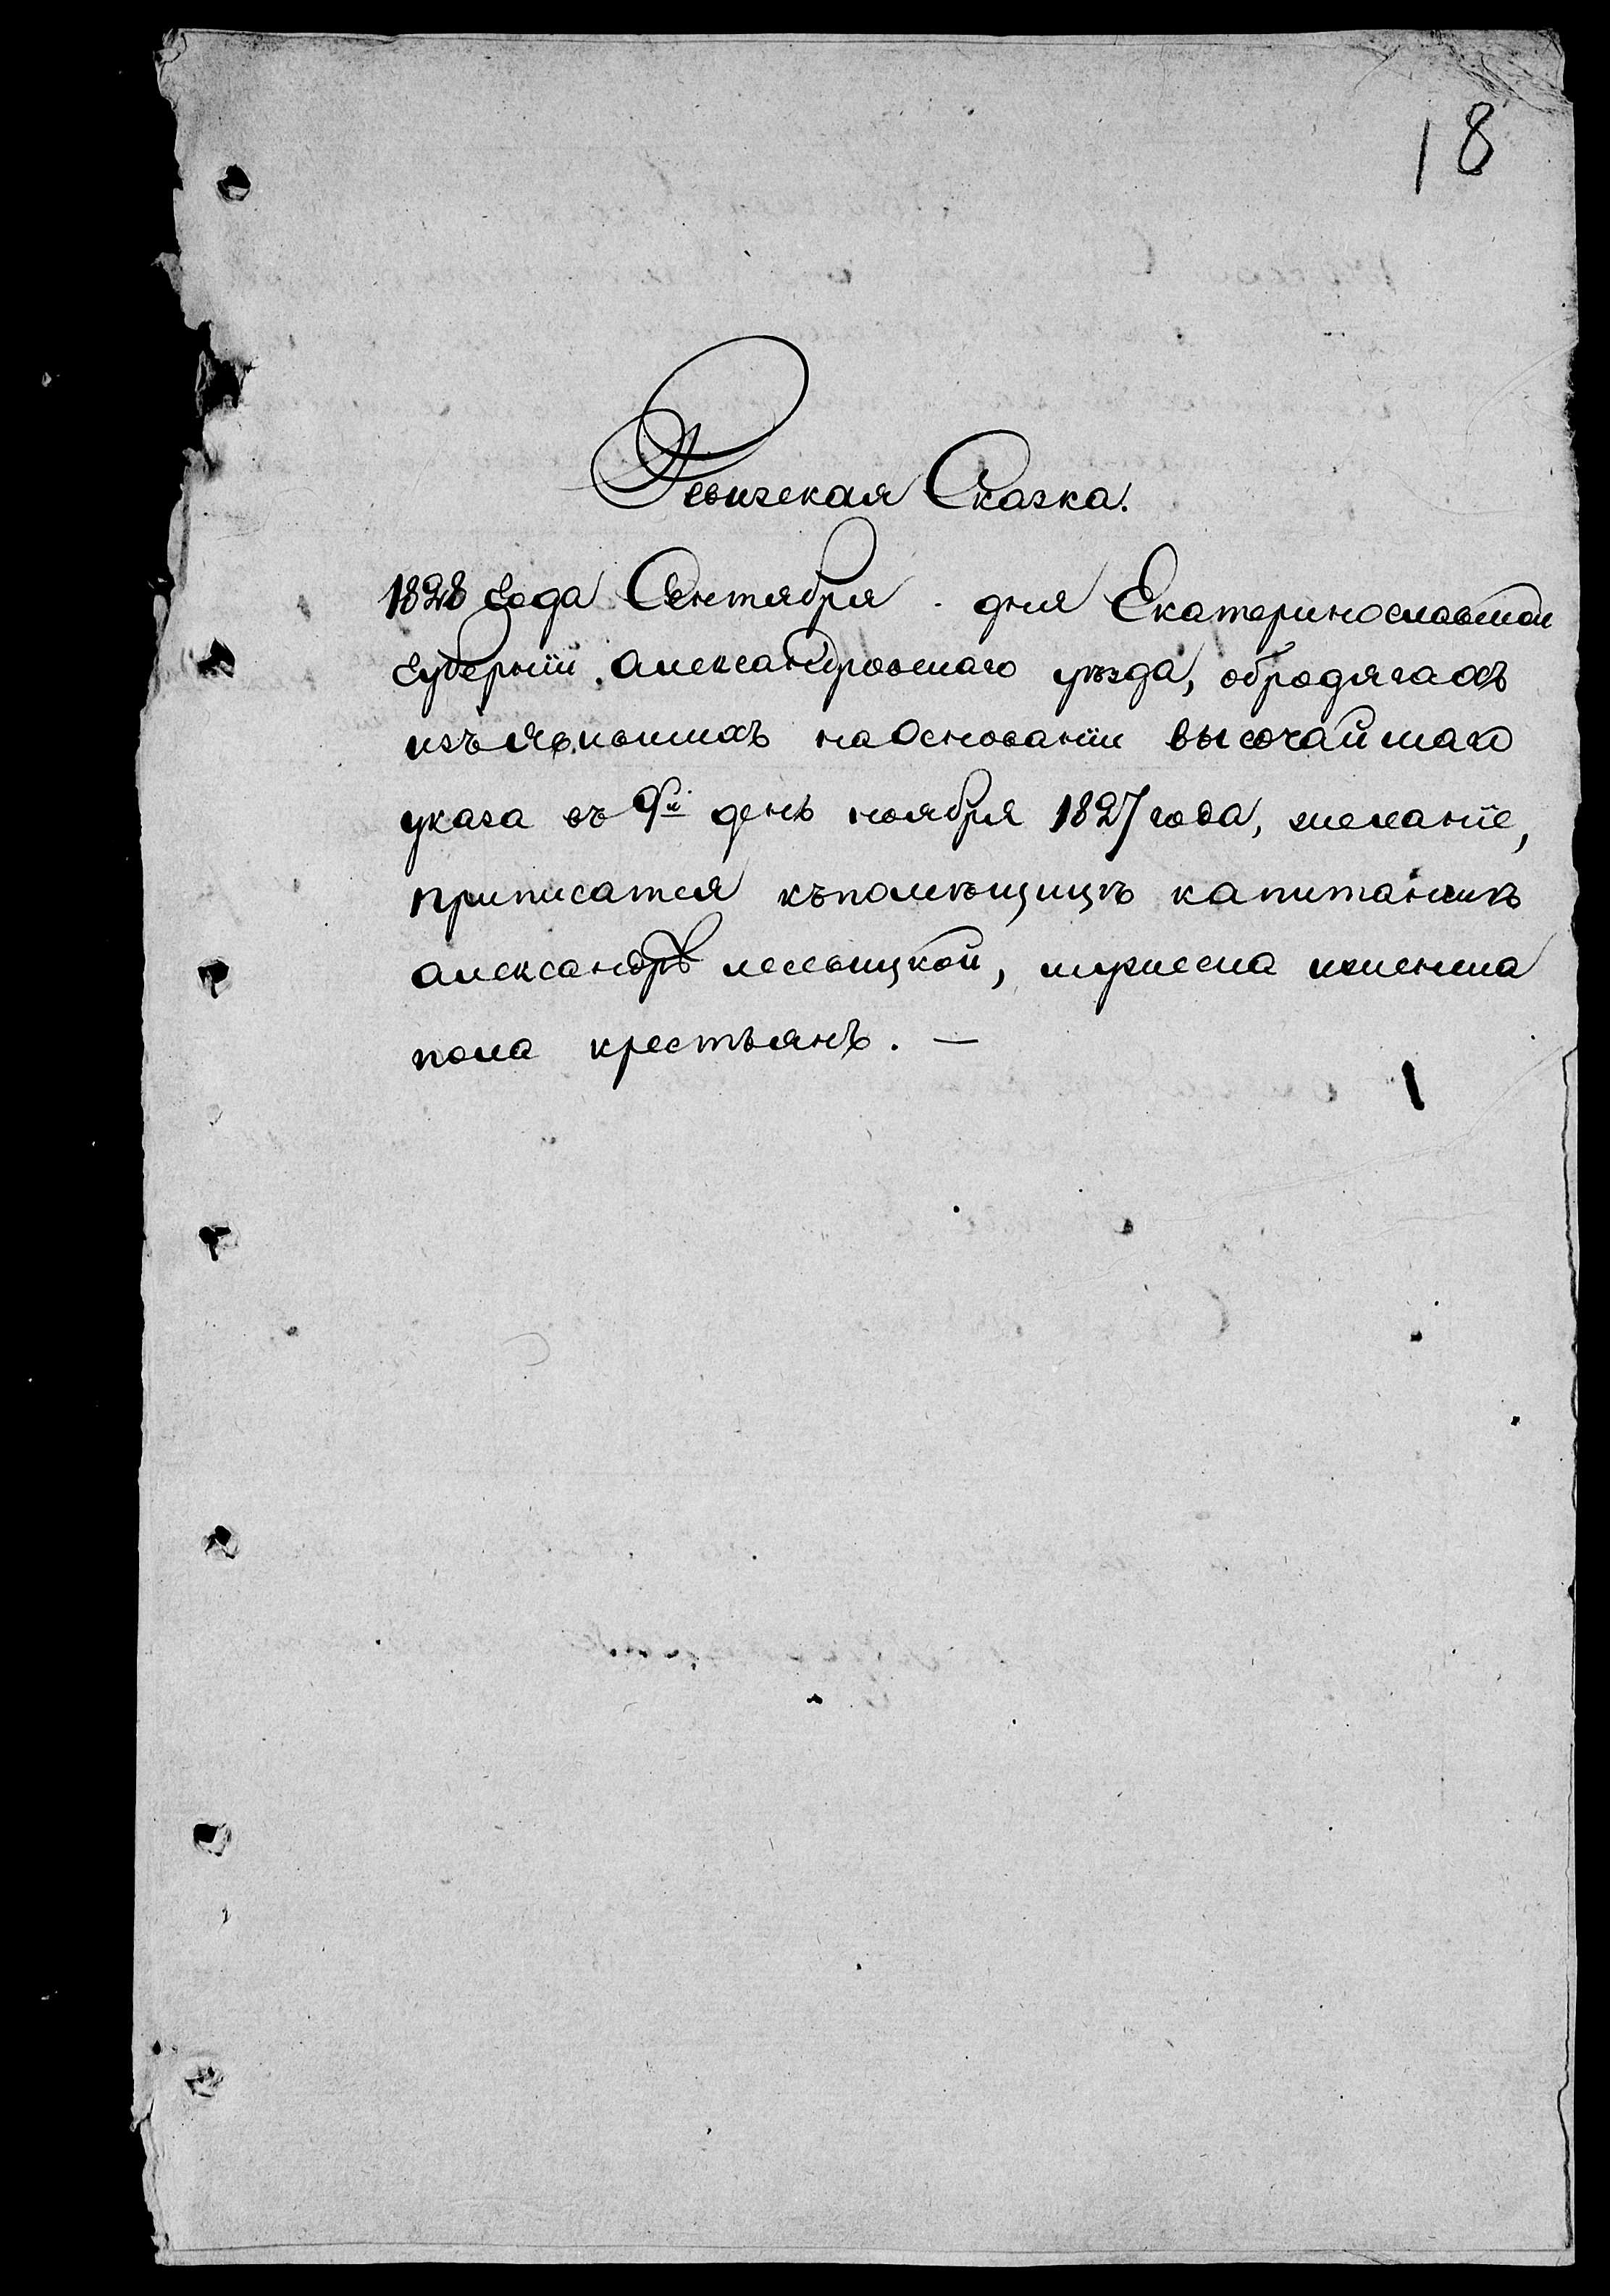 18
Ревизская Сказка.
1828 года Сентября . дня Екатеринославской
губернїи Александровскаго уѣзда, обродягахъ
изъявившихъ наОснованїи высочайшаго
указа въ 9й день ноября 1827 года, желанїе,
приписатся къпомѣщицѣ капитаншѣ
александрѣ лесевицкой, мужеска иженска
пола крестьянъ. —
1